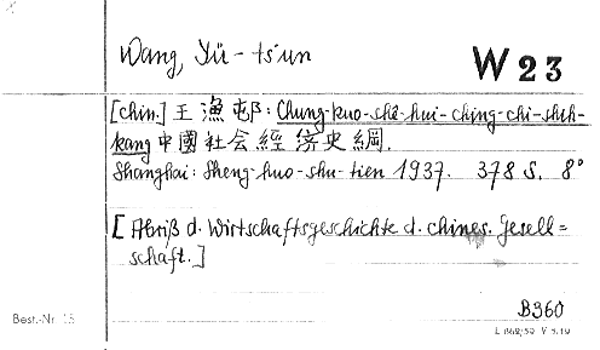 Wang, Yü-ts'un
W 23
[chin.] 王 漁 邨: Chung-kuo-shê-hui-ching-chi-shih-
kang 中國社会經济史綱.
Shanghai: Sheng-huo-shu-tien 1937. 378 S. 8°
[Abriß d. Wirtschaftsgeschichte d. chines. Gesell=
schaft.]
B360
Best.-Nr. 13
L 868/59 V 5.19